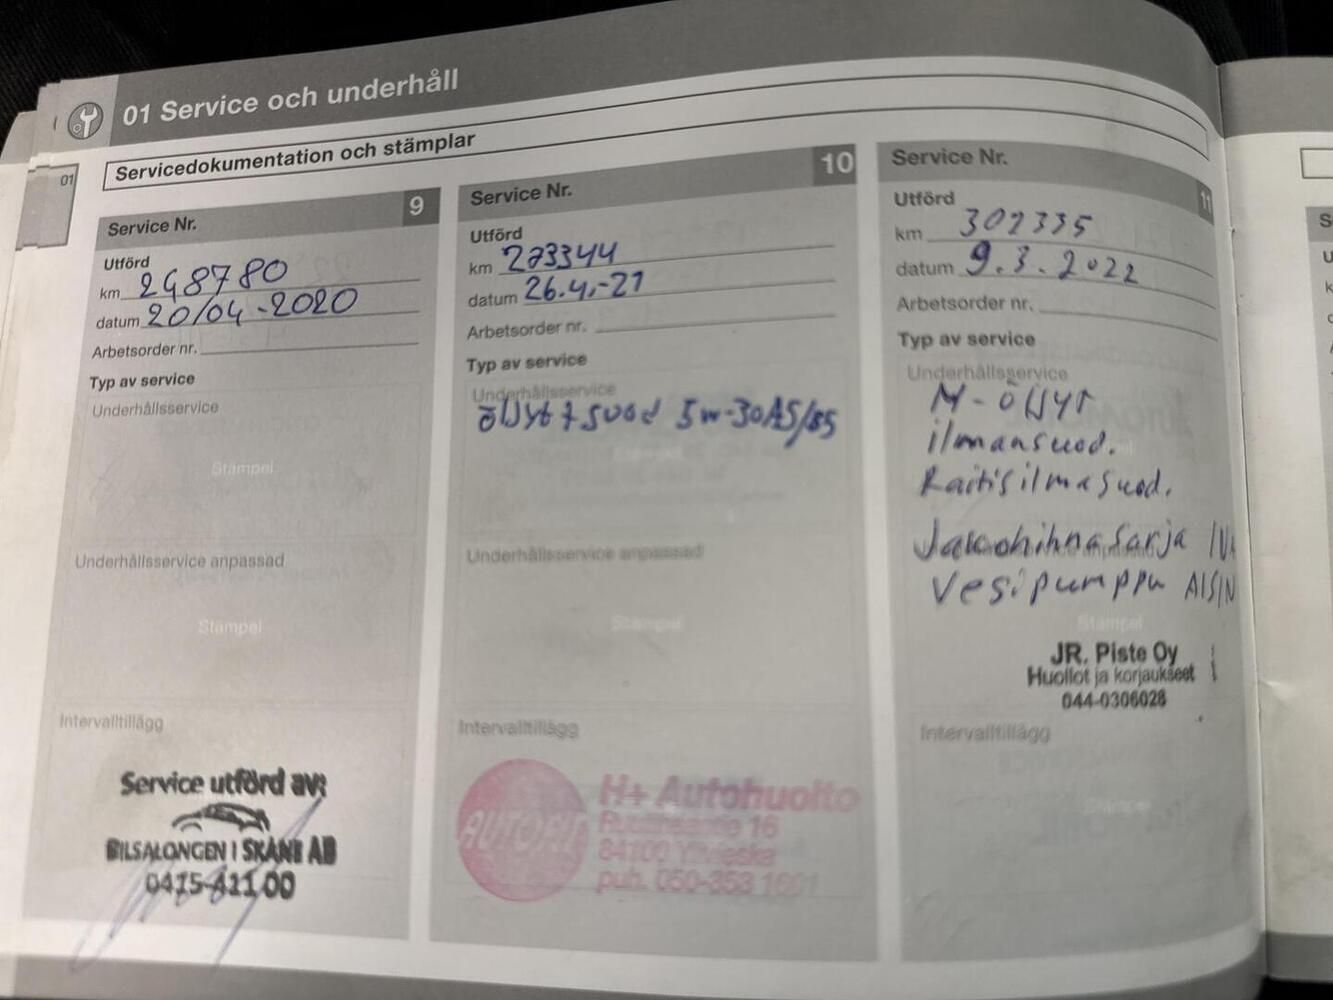 01 Service och underhåll
Servicedokumentation och stämplar
01
Service Nr. 9
Utförd
km 248780
datum 20/04-2020
Arbetsorder nr.
Typ av service
Underhållsservice
Stämpel
Underhållsservice anpassad
Stämpel
Intervalltillägg
Service utförd av:
BILSALONGEN I SKÅNE AB
0415-411 00
Service Nr. 10
Utförd
km 273344
datum 26.4.-21
Arbetsorder nr.
Typ av service
Underhållsservice
öljyt + suod 5w-30 A5/B5
Underhållsservice anpassad
Stämpel
Intervalltillägg
AUTOFIT
H+ Autohuolto
16
84100 Ylivieska
puh. 050-353 1601
Service Nr. 11
Utförd
km 302335
datum 9.3.2022
Arbetsorder nr.
Typ av service
Underhållsservice
M-öljyt
ilmansuod.
Raitisilmasuod.
Jakohihnasarja
Vesipumppu AISIN
Stämpel
JR. Piste Oy
Huollot ja korjaukset
044-0306028
Intervalltillägg
Stämpel